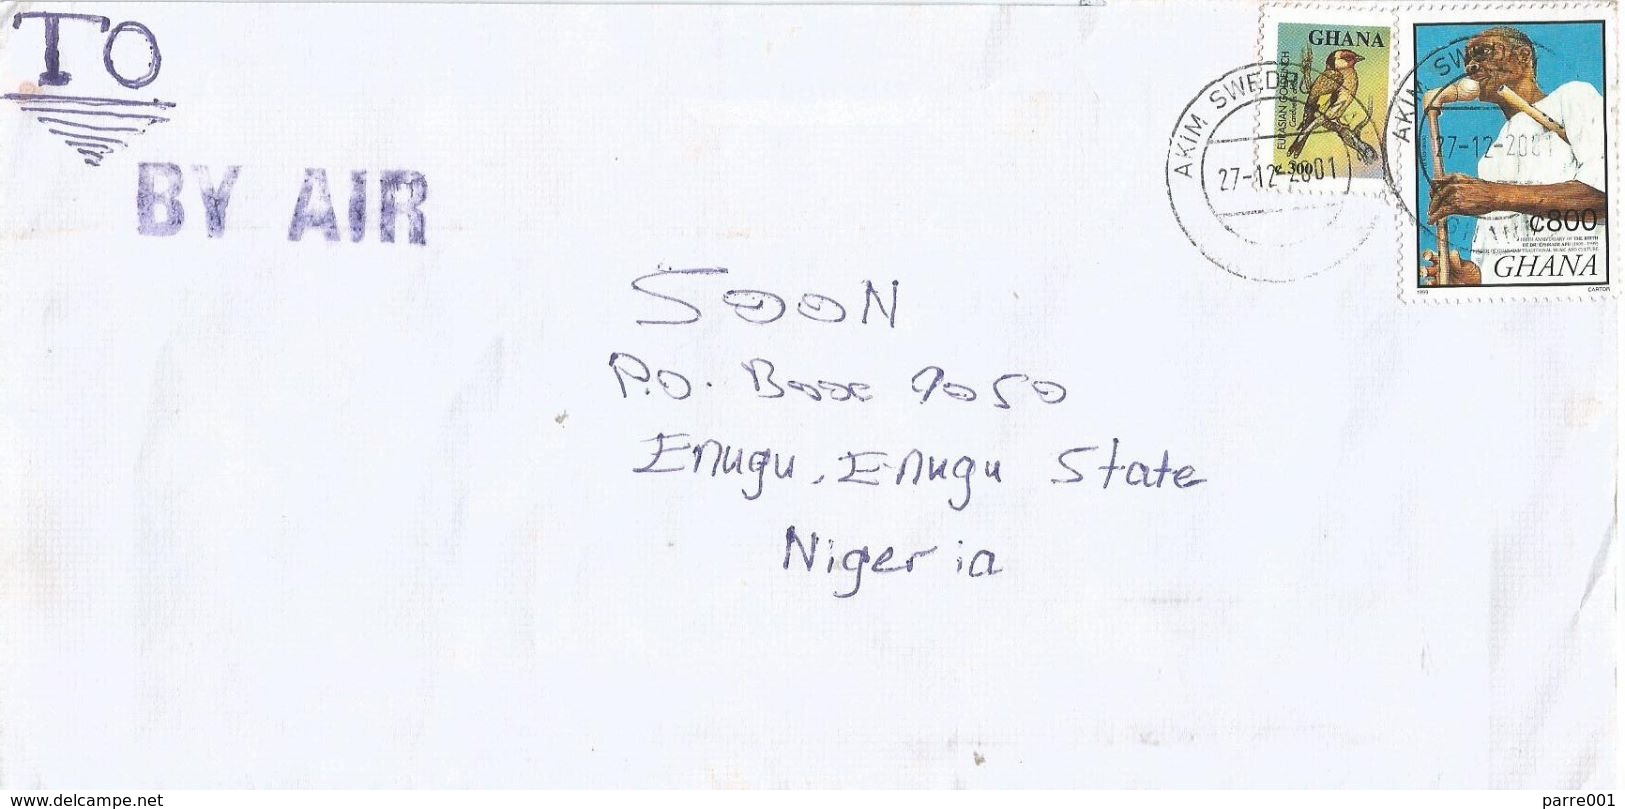 TO
BY AIR
GHANA
EURASIAN GOLDFINCH
¢300
AKIM SWEDRU
27-12-2001
AKIM SWEDRU
27-12-2001
¢800
GHANA
1999
CARTOR
SOON
P.O. Box 9050
Enugu, Enugu State
Nigeria
www.delcampe.net
parre001